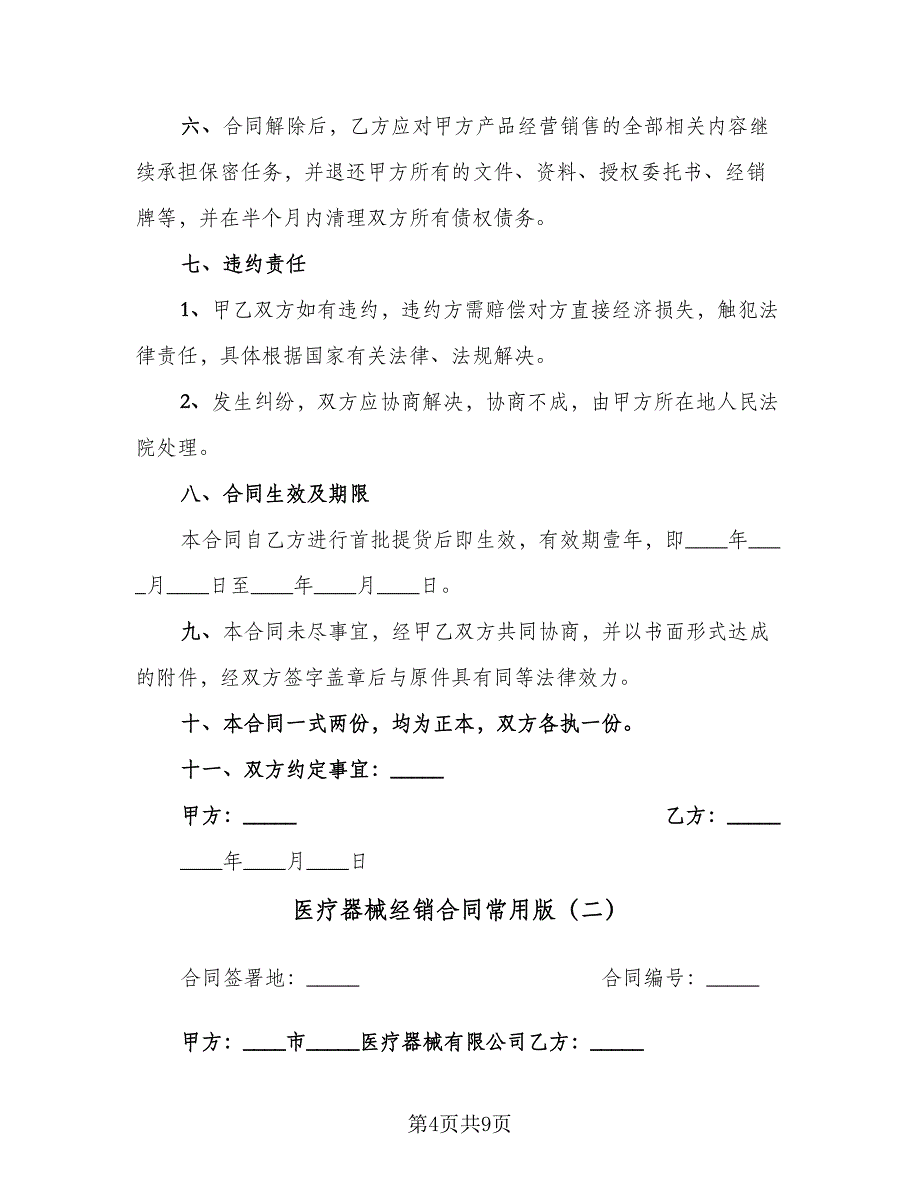 六、合同解除后，乙方应对甲方产品经营销售的全部相关内容继
续承担保密任务，并退还甲方所有的文件、资料、授权委托书、经销
牌等，并在半个月内清理双方所有债权债务。
七、违约责任
1、甲乙双方如有违约，违约方需赔偿对方直接经济损失，触犯法
律责任，具体根据国家有关法律、法规解决。
2、发生纠纷，双方应协商解决，协商不成，由甲方所在地人民法
院处理。
八、合同生效及期限
本合同自乙方进行首批提货后即生效，有效期壹年，即____年___
_月____日至____年____月____日。
九、本合同未尽事宜，经甲乙双方共同协商，并以书面形式达成
的附件，经双方签字盖章后与原件具有同等法律效力。
十、本合同一式两份，均为正本，双方各执一份。
十一、双方约定事宜：_____
甲方：_____ 乙方：_____
____年____月____日
医疗器械经销合同常用版（二）
合同签署地：_____ 合同编号：_____
甲方：____市_____医疗器械有限公司乙方：_____
第4页共9页